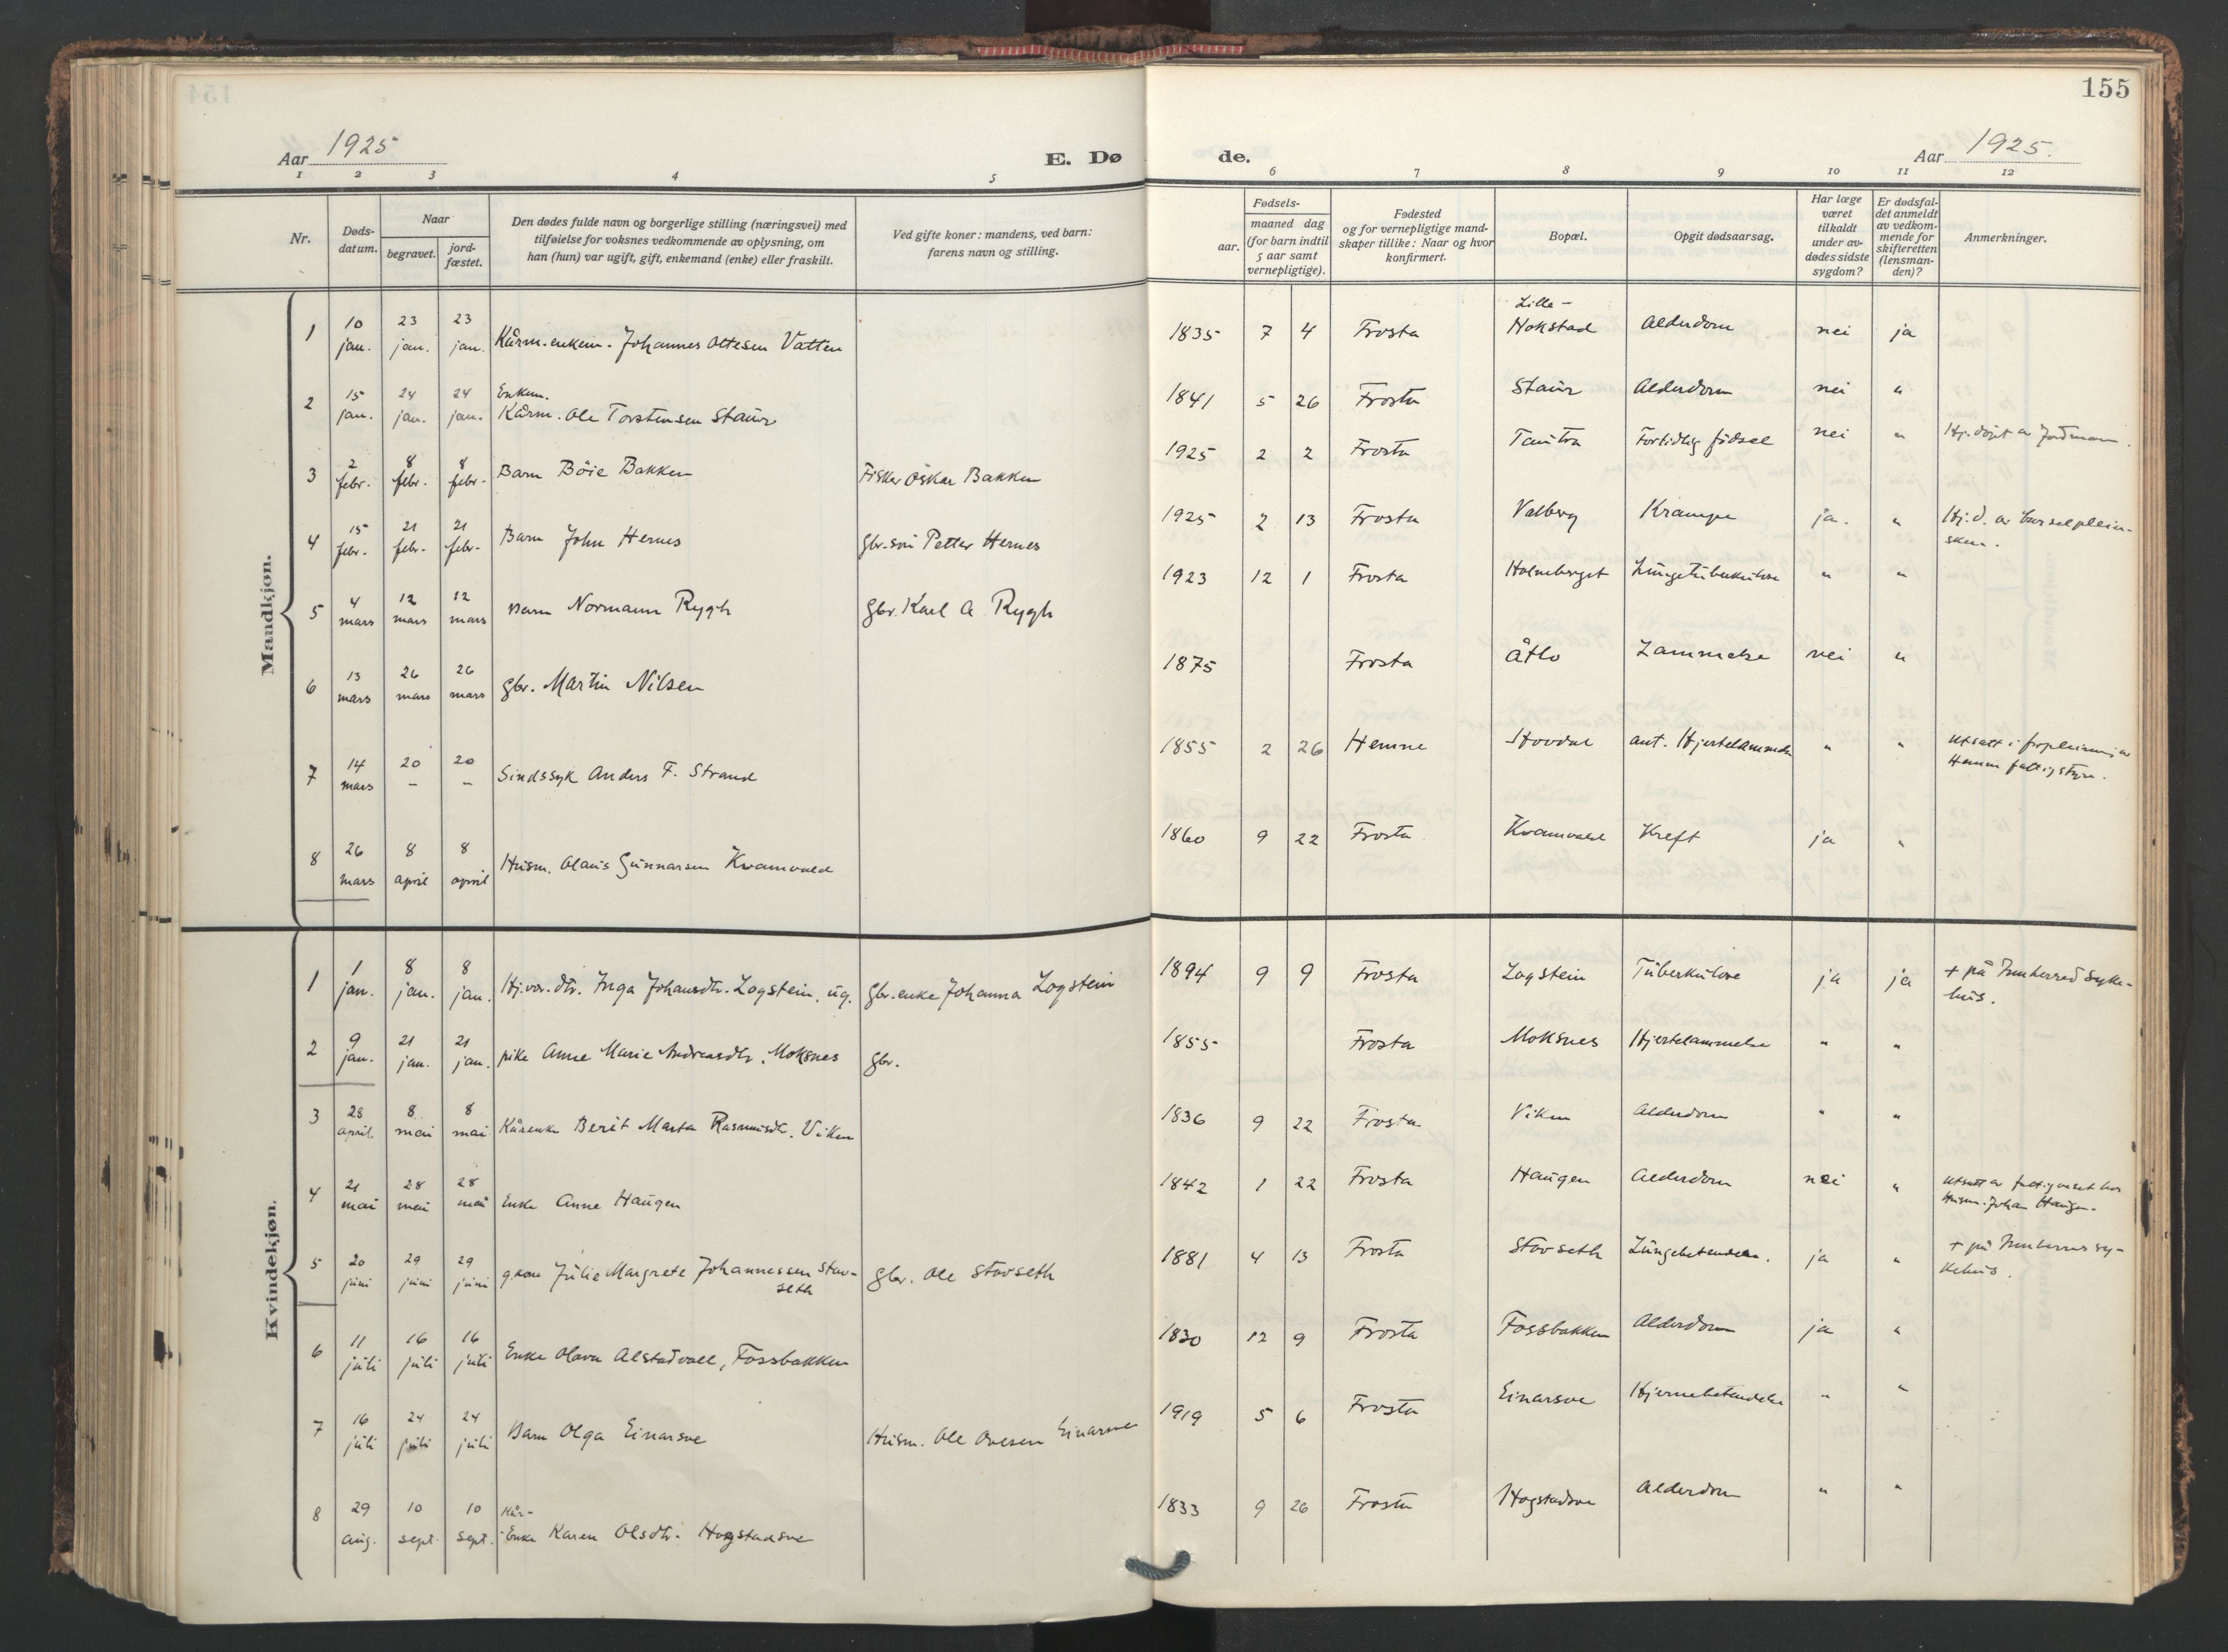 154
155
Aar 1925
E. Dø
de.
Aar 1925.
1 2 3 4 5 6 7 8 9 10 11 12
Nr.
Døds-
datum.
Naar
begravet.
jord-
fæstet.
Den dødes fulde navn og borgerlige stilling (næringsvei) med
tilføielse for voksnes vedkommende av oplysning, om
han (hun) var ugift, gift, enkemand (enke) eller fraskilt.
Ved gifte koner: mandens, ved barn:
farens navn og stilling.
Fødsels-
aar.
maaned dag
(for barn indtil
5 aar samt
vernepligtige).
Fødested
og for vernepligtige mand-
skaper tillike: Naar og hvor
konfirmert.
Bopæl.
Opgit dødsaarsag.
Har læge
været
tilkaldt
under av-
dødes sidste
sygdom?
Er dødsfal-
det anmeldt
av vedkom-
mende for
skifteretten
(lensman-
den)?
Anmerkninger.
Mandkjøn.
Lille-
1 10 jan. 23 jan. 23 jan. Kårm. enkem. Johannes Ottesen Vatten 1835 7 4 Frosta Hokstad Alderdom nei ja
Enkem.
2 15 jan. 24 jan. 24 jan. Kårm. Ole Torstensen Staur 1841 5 26 Frosta Staur Alderdom nei "
3 2 febr. 8 febr. 8 febr. Barn Böie Bakken Fisker Oskar Bakken 1925 2 2 Frosta Tautra Fortidlig födsel nei " Hj.döpt av
4 15 febr. 21 febr. 21 febr. Barn John Hernes Gbr. sön Petter Hernes 1925 2 13 Frosta Valberg Krampe ja. " Hj.d. av barselpleier-
sken.
5 4 mars 12 mars 12 mars Barn Normann Rygh Gbr. Karl A. Rygh 1923 12 1 Frosta Holmberget Lungetuberkulose " "
6 13 mars 26 mars 26 mars Gbr. Martin Nilsen 1875 Frosta Åtlo Lammelse nei "
7 14 mars 20 – 20 – Sindssyk Anders F. Strand 1855 2 26 Hemne Hovdal ant. Hjertelammelse " " Utsatt i forpleining av
Hemne fattigstyre.
8 26 mars 8 april 8 april Husm. Olaus Gunnarsen Kvamvald 1860 9 22 Frosta Kvamvald Kreft ja "
Kvindekjøn.
1 1 jan. 8 jan. 8 jan. Hj.vær. dtr. Inga Johansdtr. Logstein, ug. Gbr. enke Johanna Logstein 1894 9 9 Frosta Logstein Tuberkulose ja ja + på Innherred syke-
hus.
2 9 jan. 21 jan. 21 jan. pike Anne Marie Andreasdtr. Moksnes Gbr. 1855 Frosta Moksnes Hjertelammelse " "
3 28 april 8 mai 8 mai Kårenke Berit Marta Rasmusdtr. Viken 1836 9 22 Frosta Viken Alderdom " "
4 21 mai 28 mai 28 mai Enke Anne Haugen 1842 1 22 Frosta Haugen Alderdom nei " Utsatt av fattigvæset hos
Husm. Johan Haugen.
5 20 juni 29 juni 29 juni g.kone Julie Margrete Johannessen Stav-
seth Gbr. Ole Stavseth 1881 4 13 Frosta Stavseth Lungebetendelse. ja " + på Innherred sy-
kehus.
6 11 juli 16 juli 16 juli Enke Olava Alstadvall, Fossbakken 1830 12 9 Frosta Fossbakken Alderdom ja "
7 16 juli 24 juli 24 juli Barn Olga Einarsve Husm. Ole Ovesen Einarsve 1919 5 6 Frosta Einarsve Hjernebetendelse " "
Kår-
8 29 aug. 10 sept. 10 sept. Enke Karen Olsdtr. Hogstadsve 1833 9 26 Frosta Hogstadsve Alderdom " "